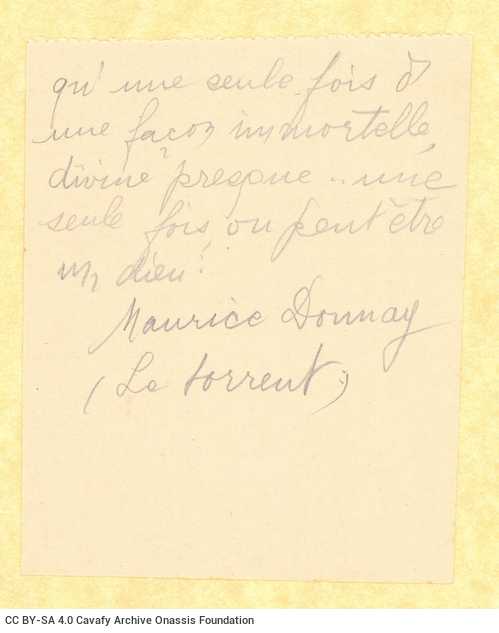 qu'une seule fois d'
une façon immortelle,
divine presque .. une
seule fois, on peut être
un dieu!
Maurice Donnay
(Le torrent)
CC BY-SA 4.0 Cavafy Archive Onassis Foundation